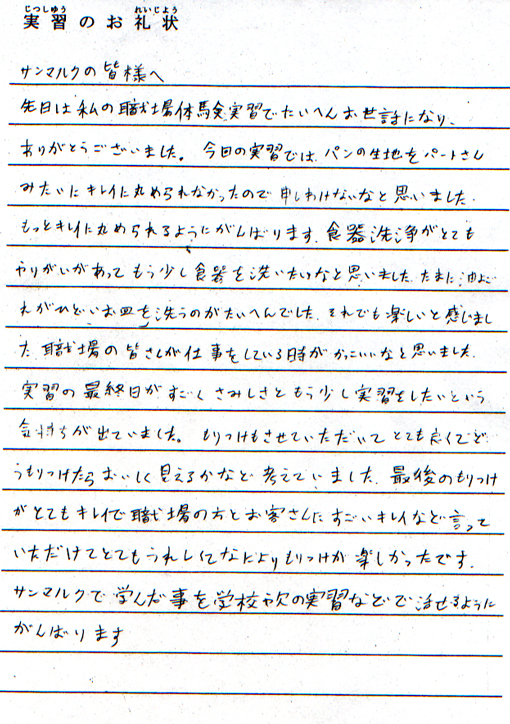 実習のお礼状
サンマルクの皆様へ
先日は私の職場体験実習でたいへんお世話になり、
ありがとうございました。今回の実習では、パンの生地をパートさん
みたいにキレイに丸められなかったので申しわけないなと思いました.
もっとキレイに丸められるようにがんばります.食器洗浄がとても
やりがいがあってもう少し食器を洗いたいなと思いました.たまに油よご
れがひどいお皿を洗うのがたいへんでした.それでも楽しいと感じまし
た.職場の皆さんが仕事をしている時がかっこいいなと思いました.
実習の最終日がすごくさみしさともう少し実習をしたいという
気持ちが出ていました。もりつけもさせていただいてとても良くてど
うもりつけたらおいしく見えるかなど考えていました.最後のもりつけ
がとてもキレイで職場の方とお客さんにすごいキレイなど言って
いただけてとてもうれしくてなによりもりつけが楽しかったです.
サンマルクで学んだ事を学校や次の実習などで活せるように
がんばります